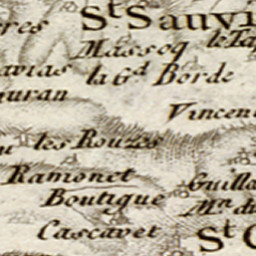 St Sauvi
res
Massoq
le Ta
avias
la Gd Borde
uran
Vincen
u
les Rouzès
Ramonet
Guilla
Boutique
Mn du
Cascavet
St